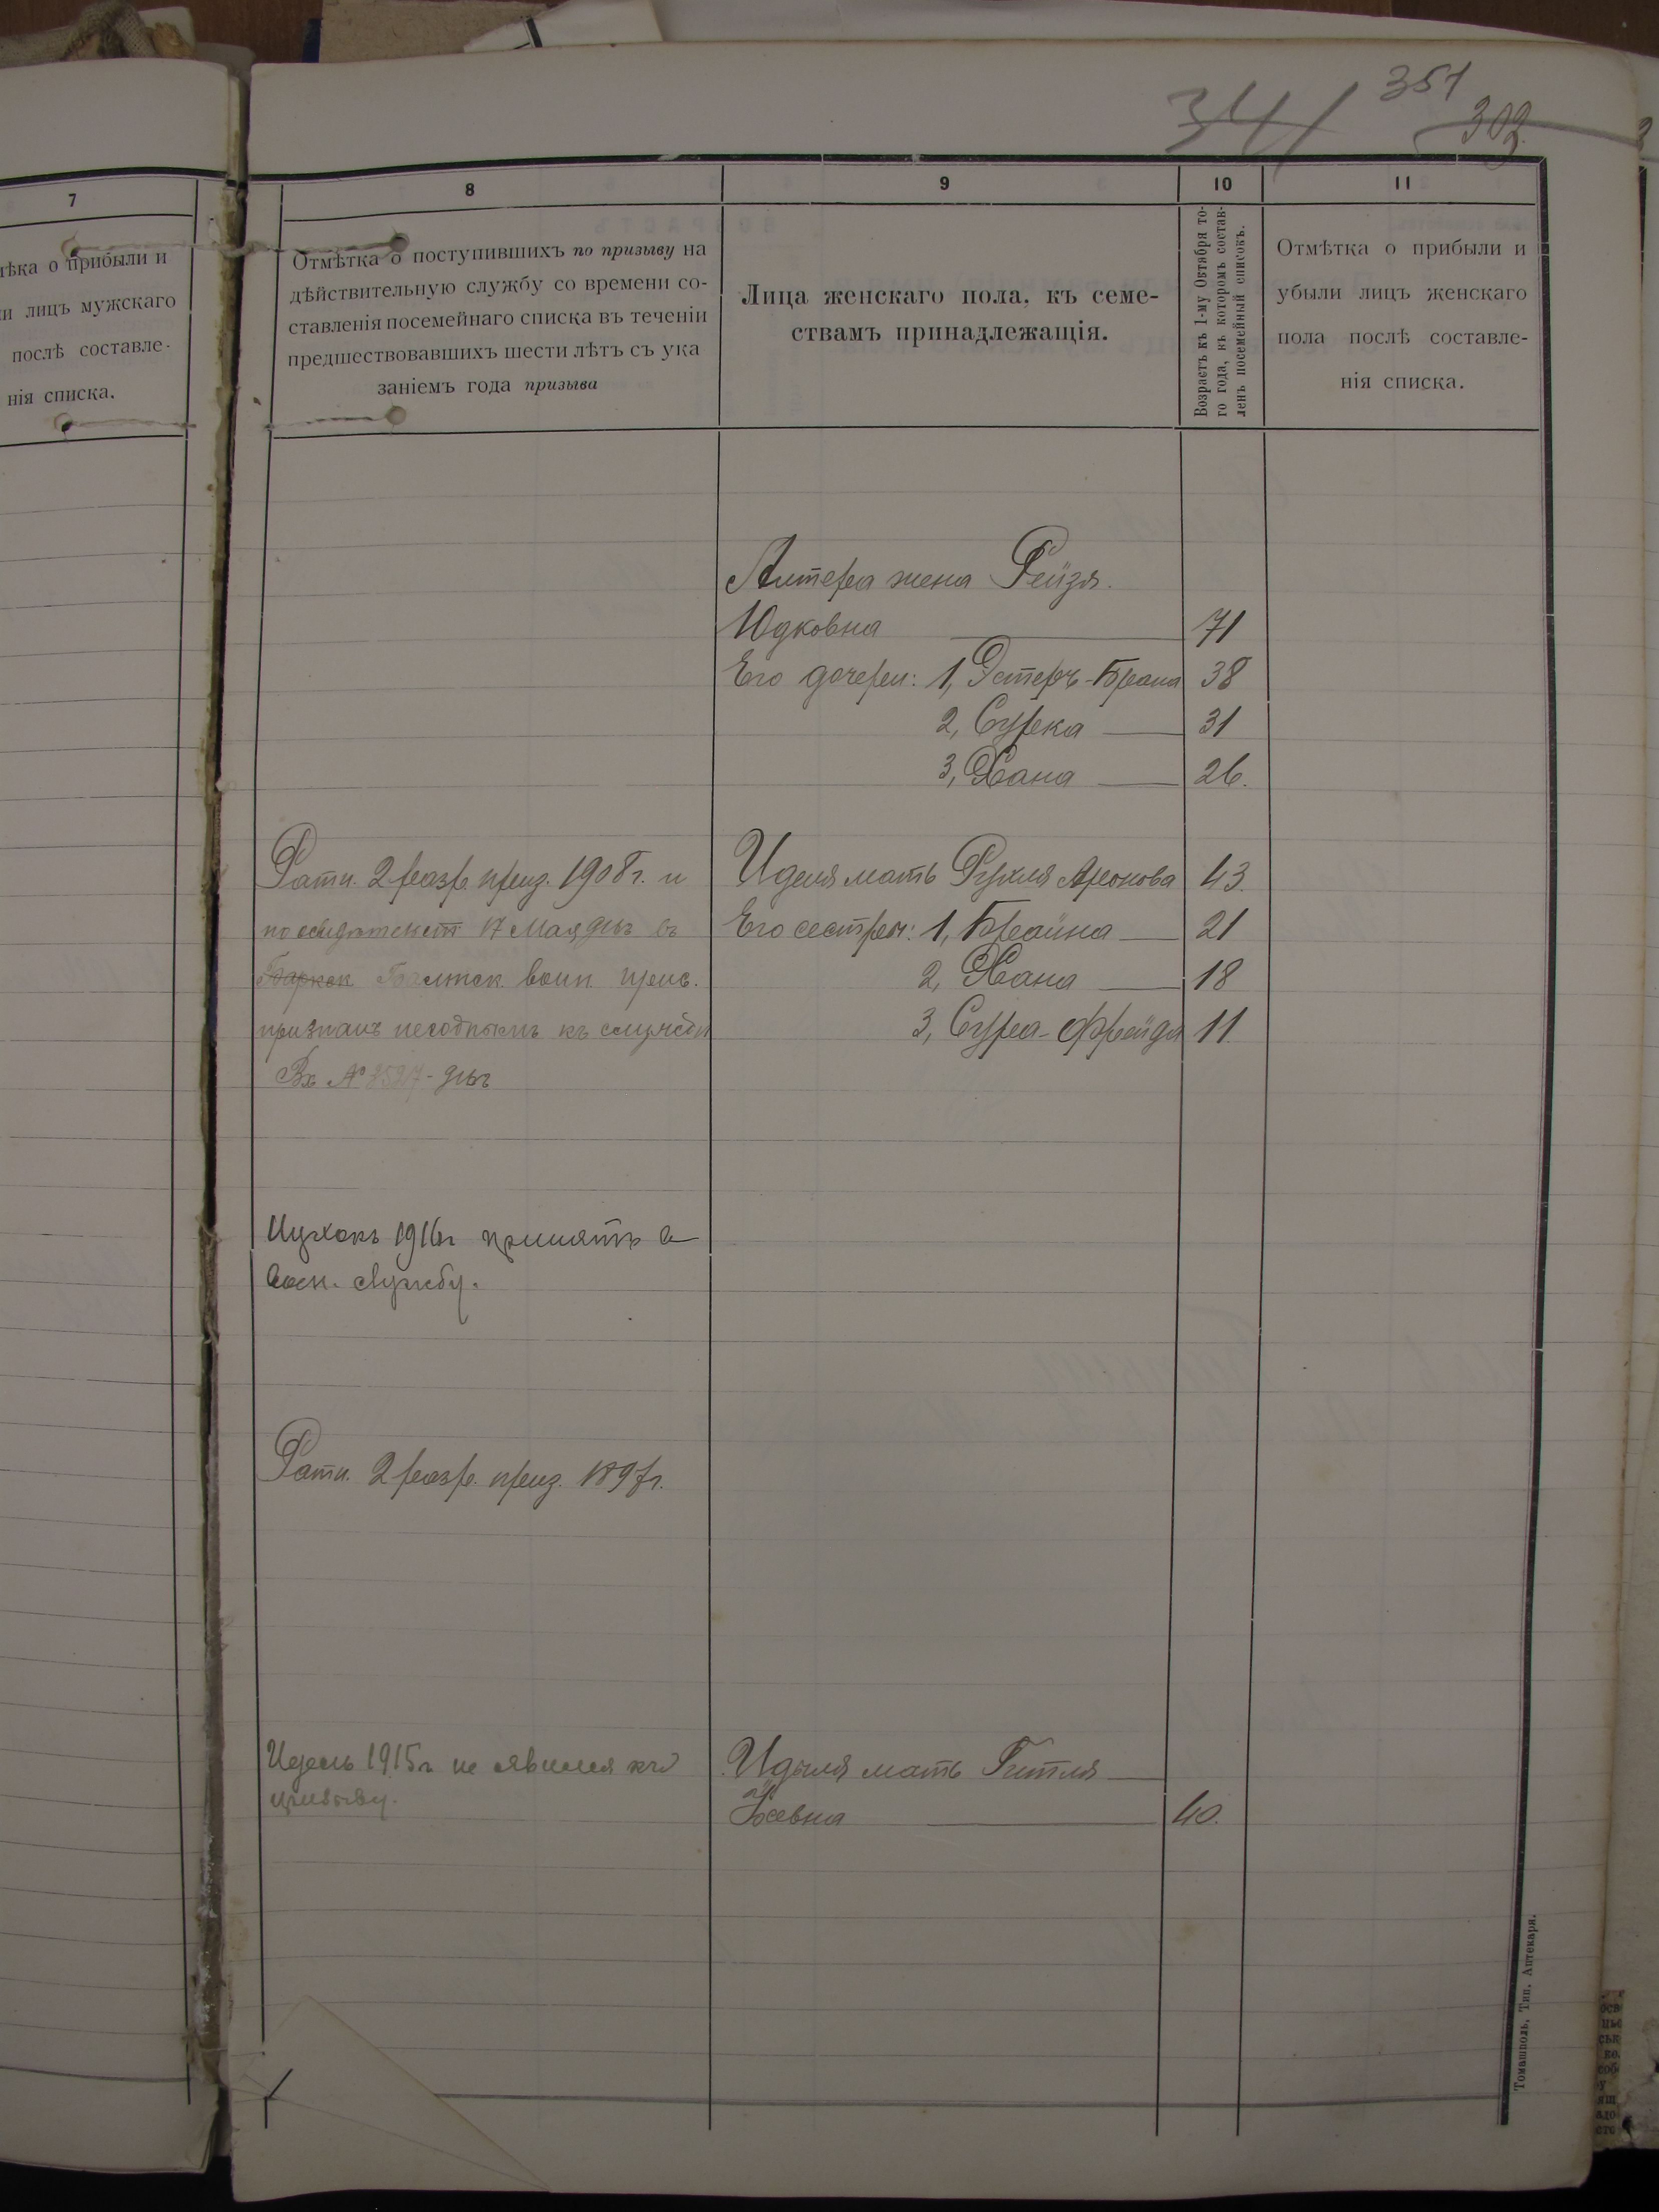 341 351 303
7
8
9
10
11
ѣка о прибыли и
и лицъ мужскаго
послѣ составле-
нія списка.
Отмѣтка о поступившихъ по призыву на
дѣйствительную службу со времени со-
ставленія посемейнаго списка въ теченіи
предшествовавшихъ шести лѣтъ съ ука
заніемъ года призыва
Лица женскаго пола, къ семе-
ствамъ принадлежащія.
Возрастъ къ 1-му Октября то-
го года, въ которомъ состав-
ленъ посемейный списокъ.
Отмѣтка о прибыли и
убыли лицъ женскаго
пола послѣ составле-
нія списка.
Алтера жена Рейзя.
Юдковна 71
Его дочери: 1, Эстеръ-Брана 38
2, Сурка 31
3, Хана 26.
Ратн. 2 разр. приз. 1908 г. и
Иделя мать Рухля Аронова 43.
17 Мая въ
Его сестры: 1, Брайна 21
воин. прис.
2, Хана 18
признанъ негоднымъ къ службѣ
3, Сура-Фрейда 11.
Вх №
Ицхокъ 1916 г принятъ в
воен. службу.
Ратн. 2 разр. приз. 1897 г.
Идель 1915 г. не явился къ
призыву.
Идыля мать Гитля
Іосевна 40.
Томашполь, Тип. Аптекаря.